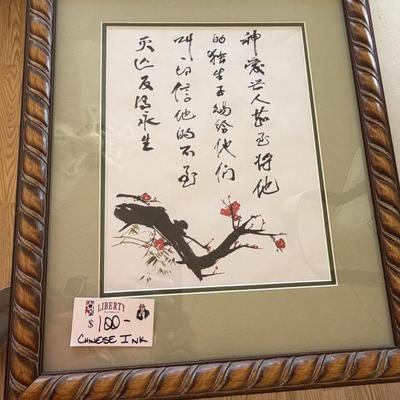 神爱世人甚至将他
的独生子赐给他们
叫一切信他的不至
灭亡反得永生
LIBERTY
$ 100-
CHINESE INK